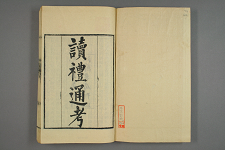 讀禮通考